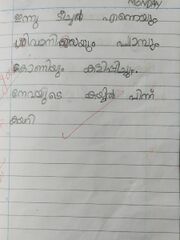 MONDAY
ഇന്നു ടീച്ചർ എന്നെയും
ശിവാനിക്കയെയും പാമ്പും
കോണിയും കളിപ്പിച്ചു.
നേവയുടെ കയ്യിൽ പിന്ന്